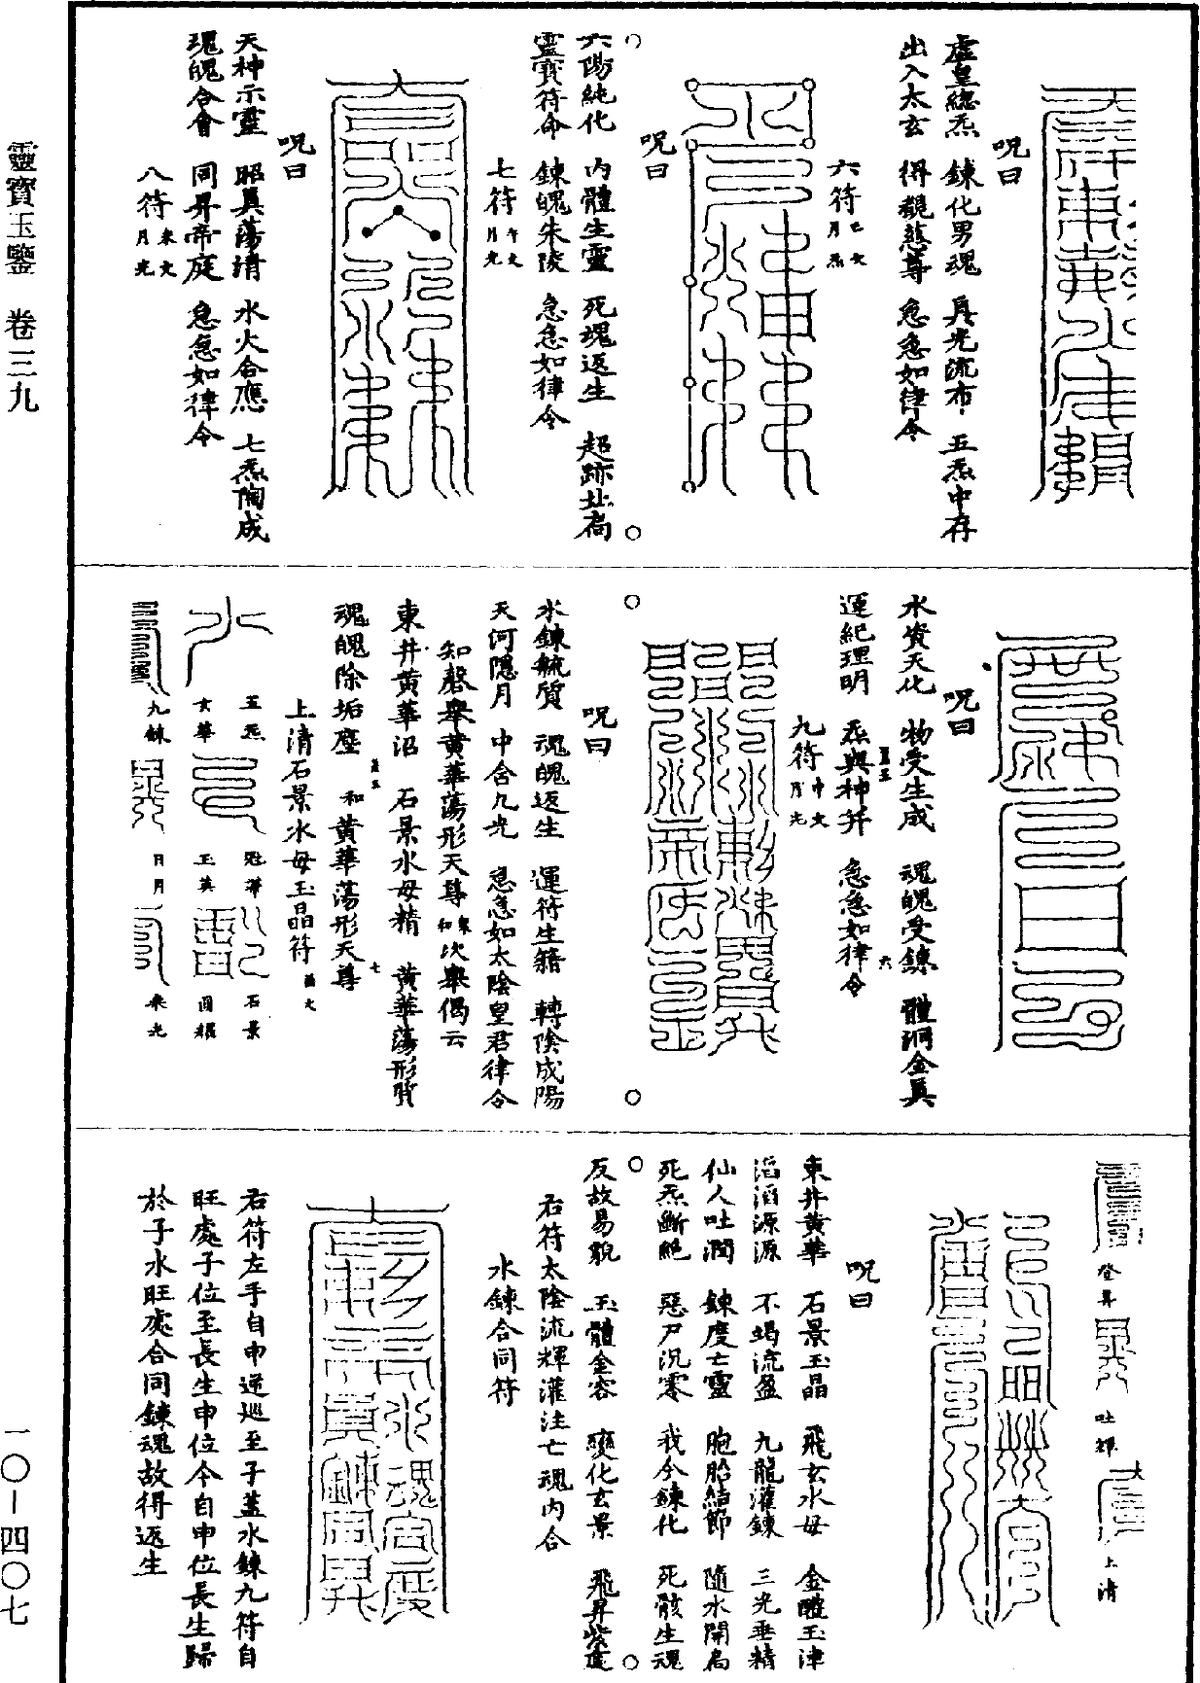 呪曰
虛皇總炁　鍊化男魂　真光流布　五炁中存
出入太玄　得覩慈尊　急急如律令
六符
呪曰
六陽純化　內體生靈　死魂返生　超跡北扃
靈寶符命　鍊魄朱陵　急急如律令
七符
呪曰
天神示靈　昭真蕩清　水火合應　七炁陶成
瑰魄合會　同昇帝庭　急急如律令
八符
呪曰
水資天化　物受生成　魂魄受鍊　體洞金真
運紀理明　炁與神并　急急如律令
九符
呪曰
水鍊毓質　魂魄返生　運符生籍　轉陰成陽
天河隱月　中含九光　急急如太陰皇君律令
知磬舉黃華蕩形天尊衆和次舉偈云
東井黃華沼　石景水母精　黃華蕩形質
魂魄除垢塵　和黃華蕩形天尊
上清石景水母玉晶符
五炁
玄華
九鍊
冠帶
玉英
日月
石景
圓耀
乘光
登昇
吐輝
上清
呪曰
東井黃華　石景玉晶　飛玄水母　金醴玉津
滔滔源源　不竭流盈　九龍灌鍊　三光垂精
仙人吐潤　鍊度亡靈　胞胎結節　隨水開扃
死炁斷絕　惡尸沉寒　我今鍊化　死骸生魂
反故易貌　玉體金容　變化玄景　飛昇紫虛
右符太陰流輝灌注亡魂內合
水鍊合同符
右符左手自申逆巡至子蓋水鍊九符自
旺處子位至長生申位今自申位長生歸
於子水旺處合同鍊魂故得返生
靈寶玉鑒　卷三九
一〇—四〇七